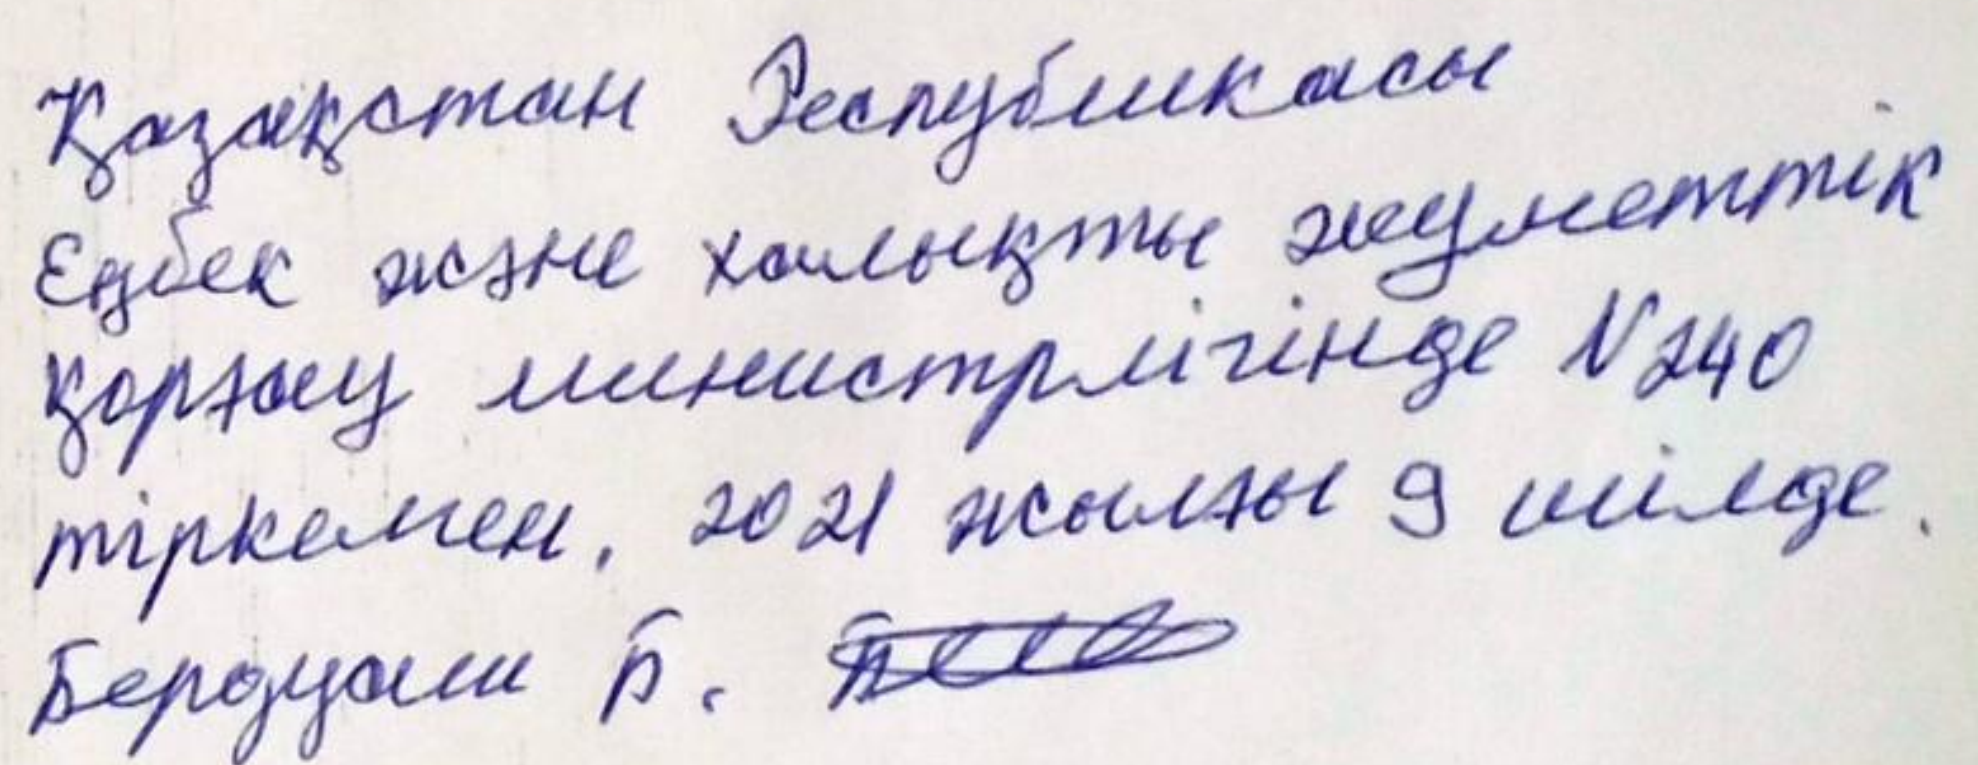 Қазақстан Республикасы
Еңбек және халықты әлеуметтік
қорғау министрлігінде N 240
тіркелген, 2021 жылғы 9 шілде.
Б.